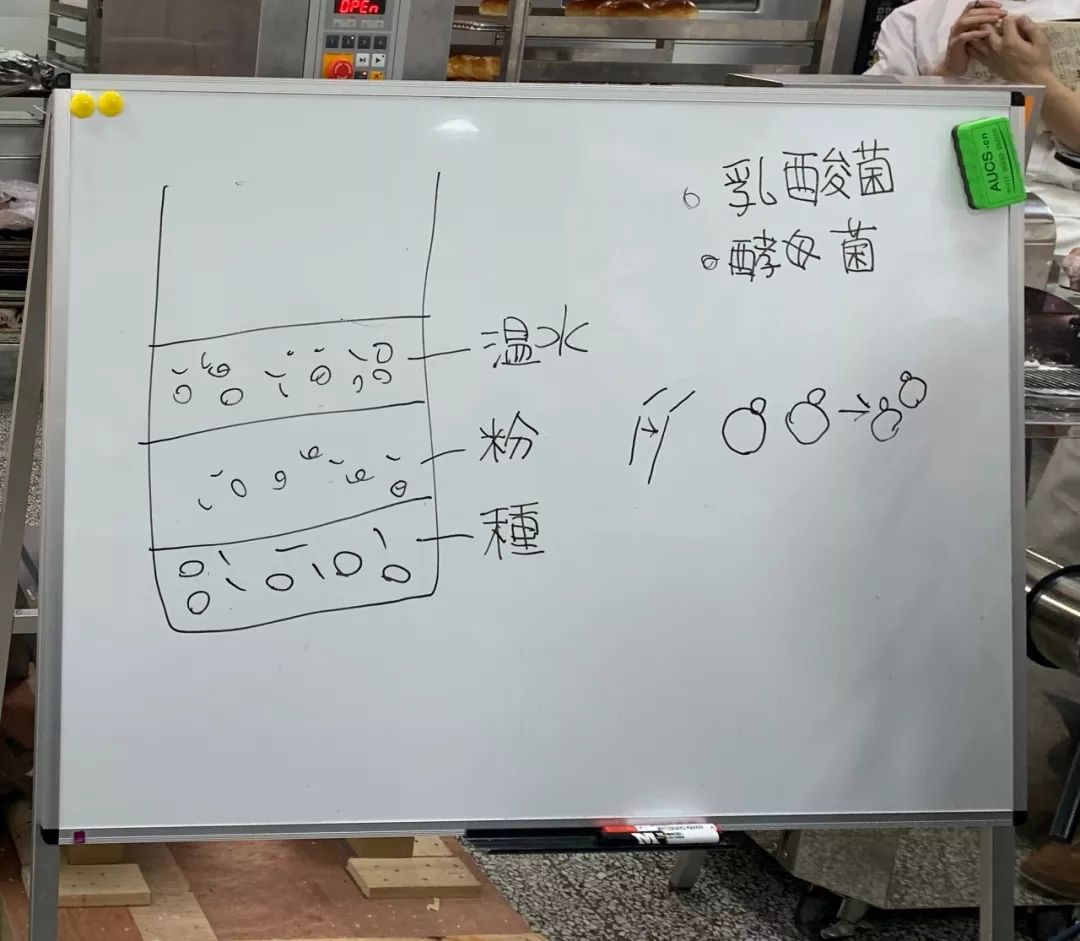 OPEn
AUCS.cn
乳酸菌
酵母菌
温水
粉
種